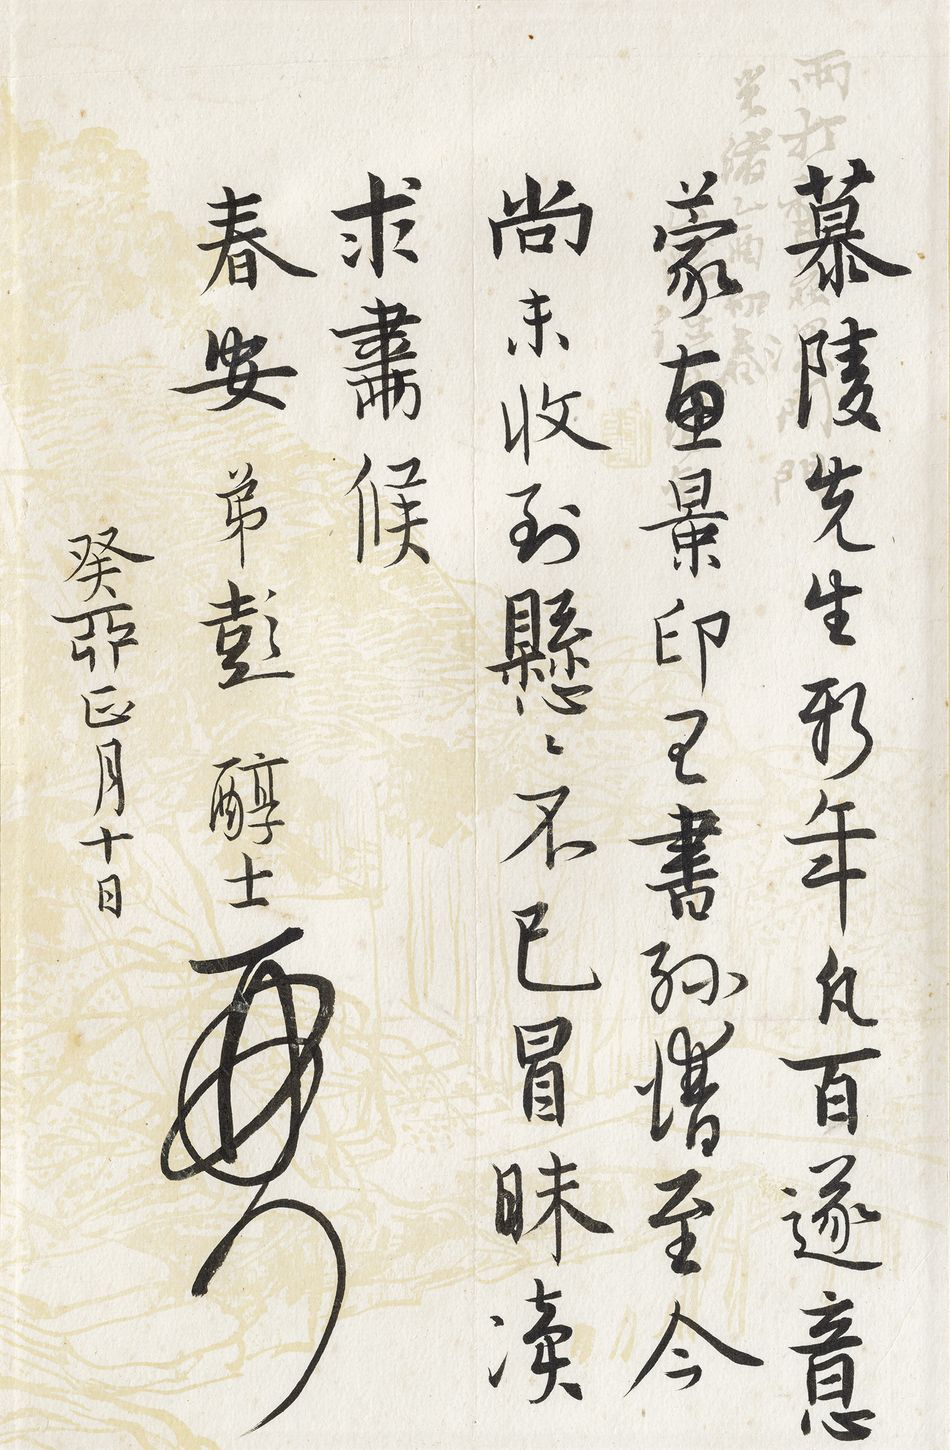 慕陵先生新年凡百遂意
蒙惠景印王書孫譜至今
尚未收到懸〻不已冒昧瀆
求肅候
春安 弟彭醇士
癸卯正月十日